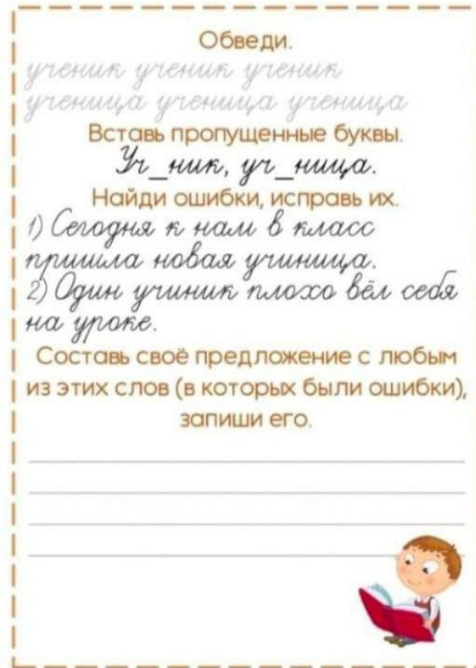 Обведи.
ученик ученик ученик
ученица ученица ученица
Вставь пропущенные буквы.
Уч_ник, уч_ница.
Найди ошибки, исправь их.
1) Сегодня к нам в класс
пришла новая учиница.
2) Один учиник плохо вёл себя
на уроке.
Составь своё предложение с любым
из этих слов (в которых были ошибки),
запиши его.